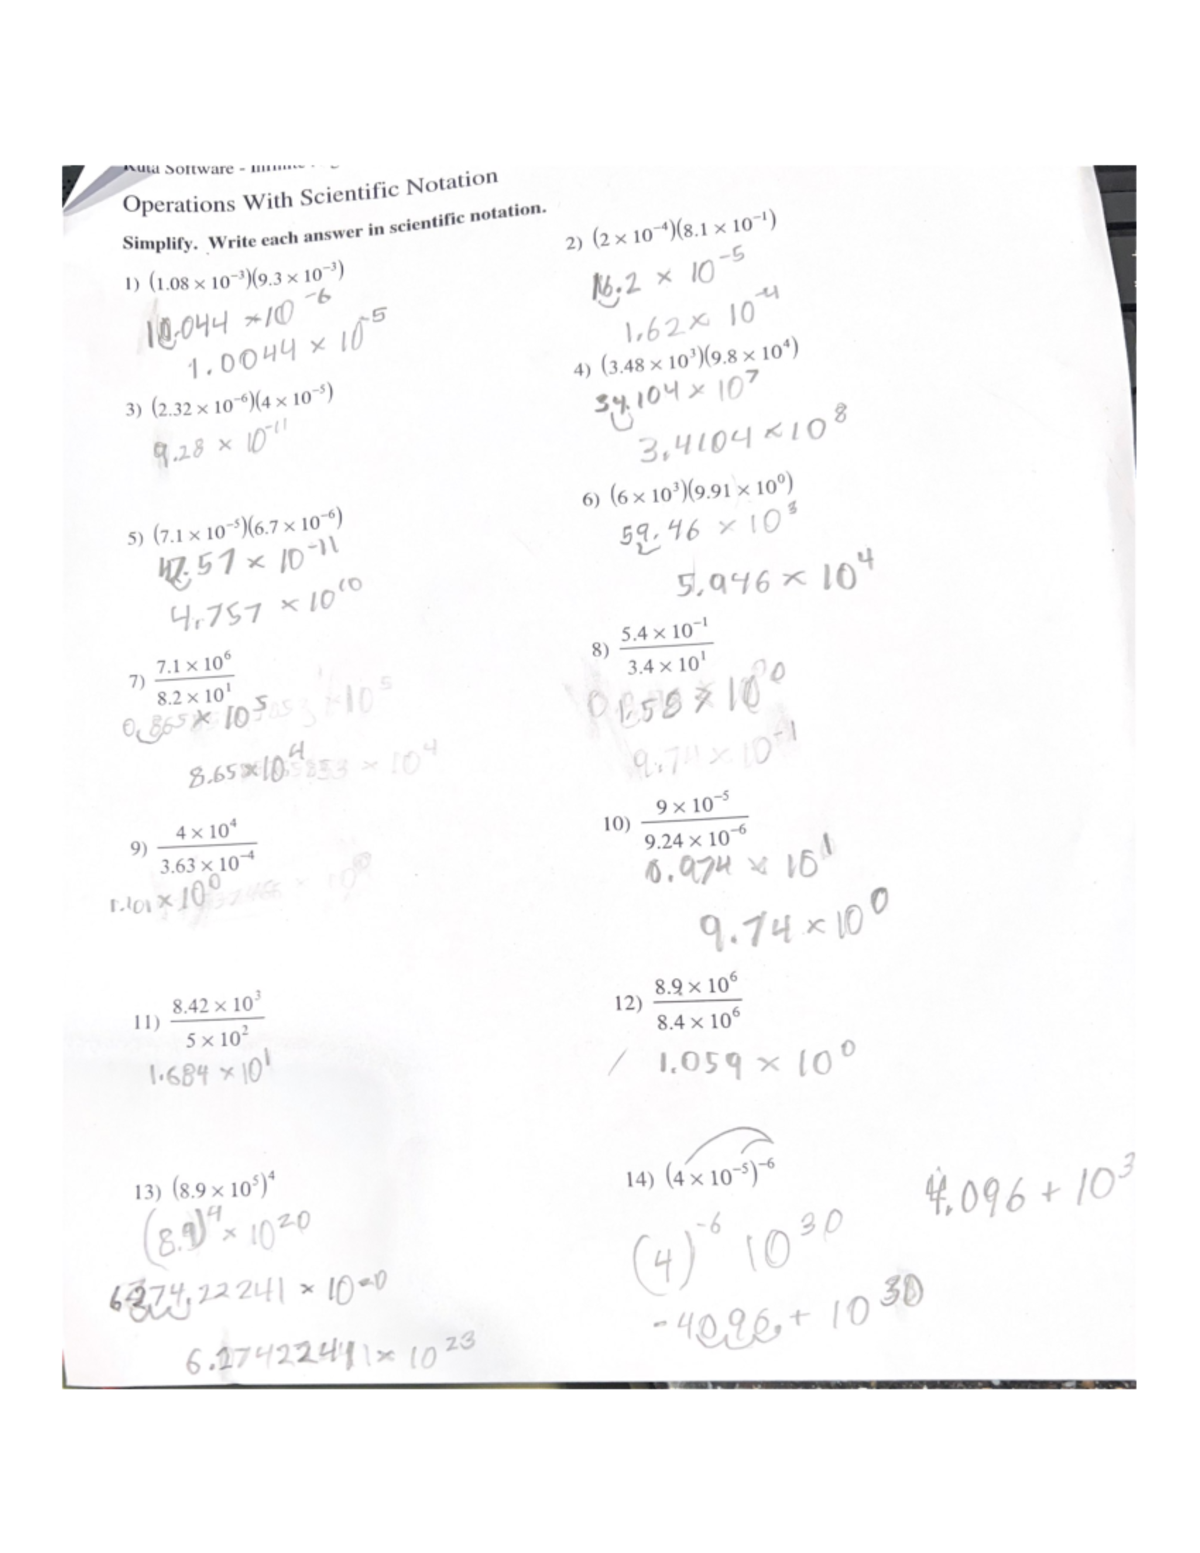 Kuta Software -
Operations With Scientific Notation
Simplify. Write each answer in scientific notation.
1) (1.08 × 10⁻³)(9.3 × 10⁻³)
10.044 × 10⁻⁶
1.0044 × 10⁻⁵
2) (2 × 10⁻⁴)(8.1 × 10⁻¹)
16.2 × 10⁻⁵
1.62 × 10⁻⁴
3) (2.32 × 10⁻⁶)(4 × 10⁻⁵)
9.28 × 10⁻¹¹
4) (3.48 × 10³)(9.8 × 10⁴)
34.104 × 10⁷
3.4104 × 10⁸
5) (7.1 × 10⁻⁵)(6.7 × 10⁻⁶)
47.57 × 10⁻¹¹
4.757 × 10¹⁰
6) (6 × 10³)(9.91 × 10⁰)
59.46 × 10³
5.946 × 10⁴
7) 7.1 × 10⁶
8.2 × 10¹
0.865 × 10⁵
8.65 × 10⁴
8) 5.4 × 10⁻¹
3.4 × 10¹
1.58 × 10⁰
9.74 × 10⁻¹
9) 4 × 10⁴
3.63 × 10⁻⁴
1.101 × 10⁰
10) 9 × 10⁻⁵
9.24 × 10⁻⁶
0.974 × 10¹
9.74 × 10⁰
11) 8.42 × 10³
5 × 10²
1.684 × 10¹
12) 8.9 × 10⁶
8.4 × 10⁶
1.059 × 10⁰
13) (8.9 × 10⁵)⁴
(8.9)⁴ × 10²⁰
6274.22241 × 10²⁰
6.27422441 × 10²³
14) (4 × 10⁻⁵)⁻⁶
(4)⁻⁶ 10³⁰
-4096. + 10³⁰
4.096 + 10³